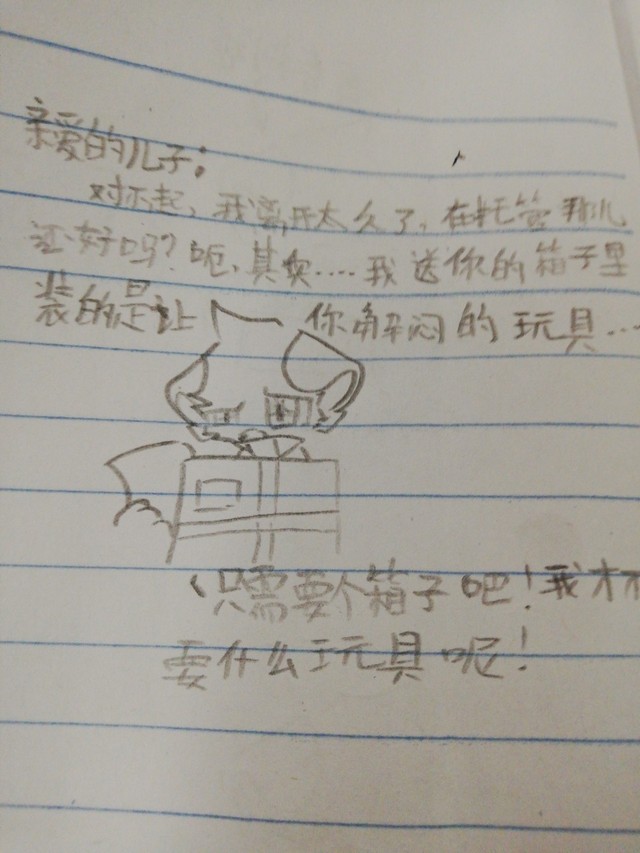 亲爱的儿子：
对不起，我离开太久了，在托管那儿
还好吗？呃，其实....我送你的箱子里
装的是让你解闷的玩具...
只需要个箱子吧！我才不
要什么玩具呢！